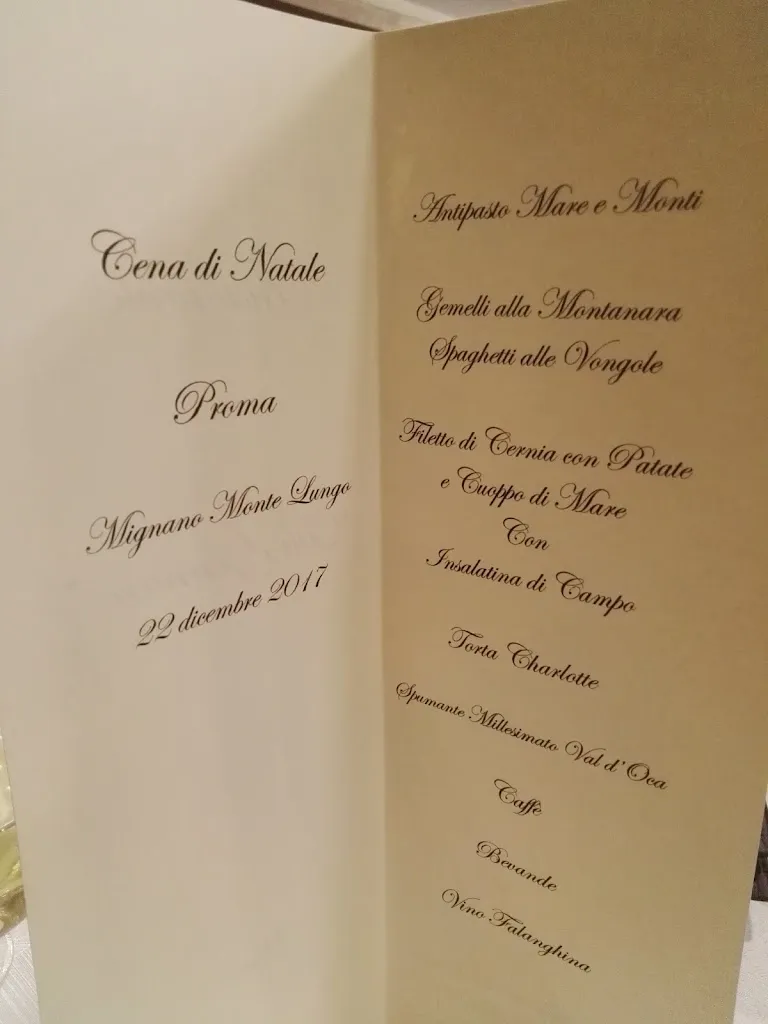 Cena di Natale
Proma
Mignano Monte Lungo
22 dicembre 2017
Antipasto Mare e Monti
Gemelli alla Montanara
Spaghetti alle Vongole
Filetto di Cernia con Patate
e Cuoppo di Mare
Con
Insalatina di Campo
Torta Charlotte
Spumante Millesimato Val d'Oca
Caffè
Bevande
Vino Falanghina